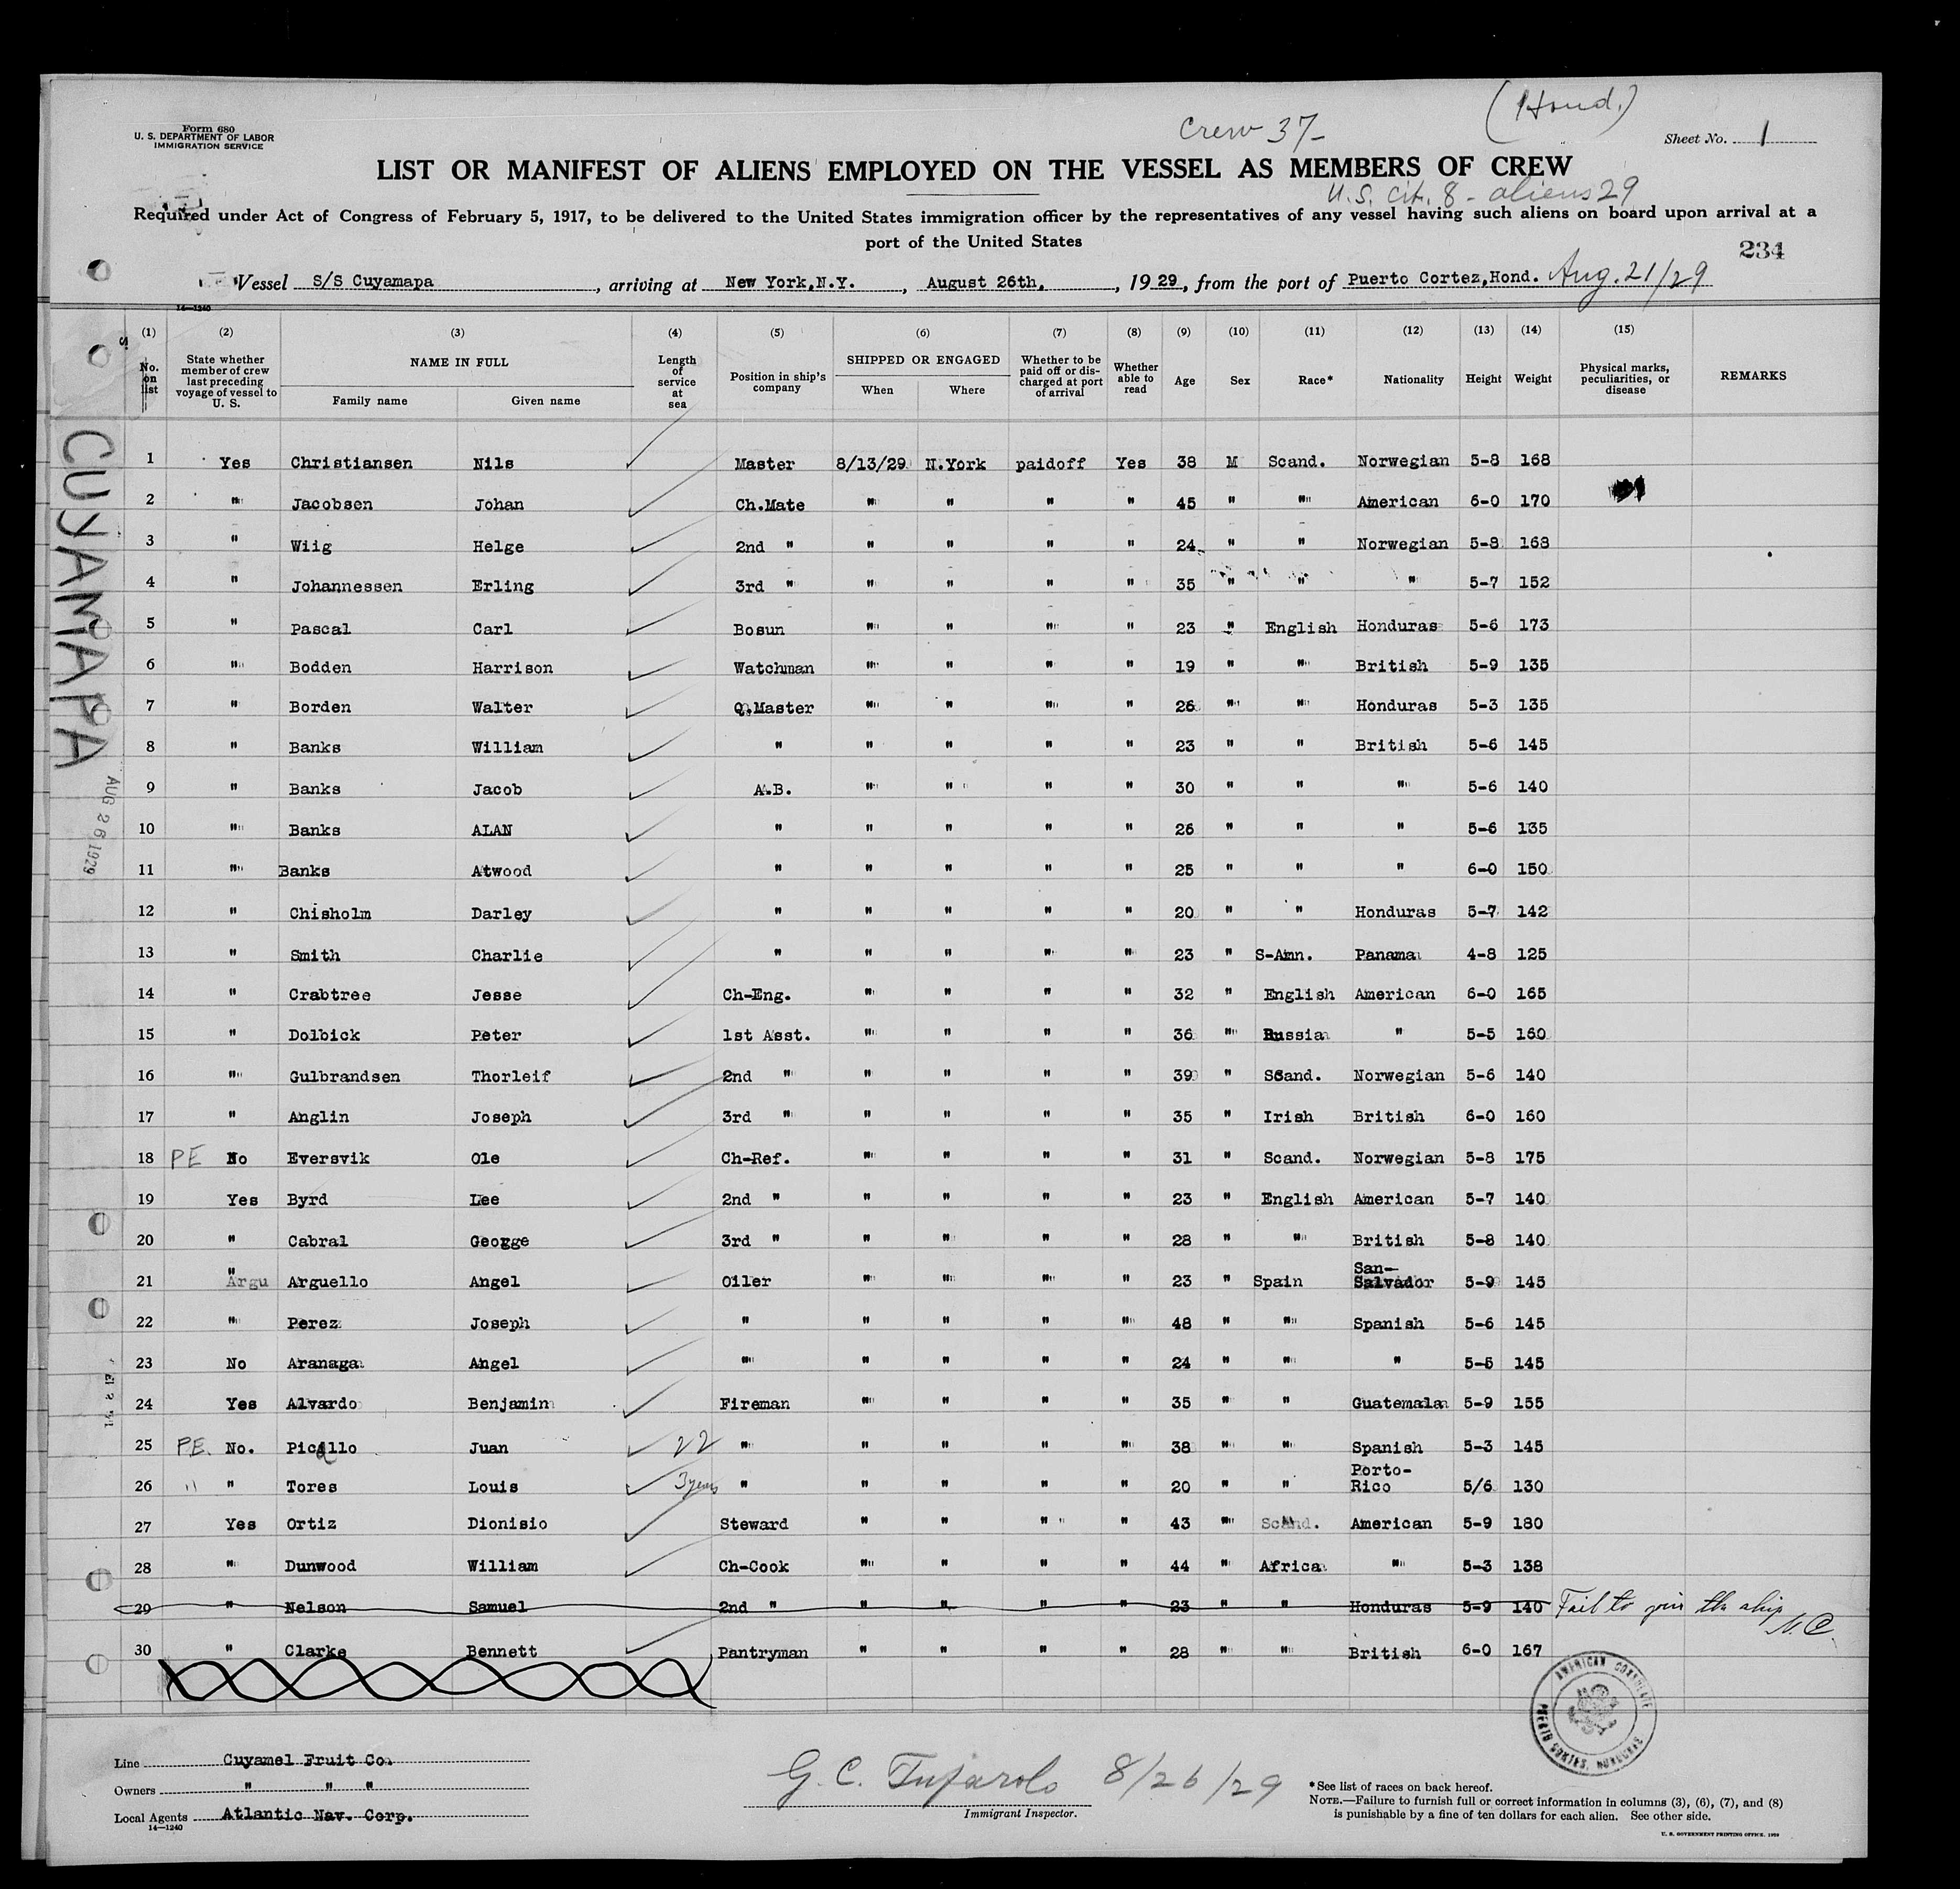 (Hond.)
Crew 37-
Form 680
U. S. DEPARTMENT OF LABOR
IMMIGRATION SERVICE
Sheet No. 1
LIST OR MANIFEST OF ALIENS EMPLOYED ON THE VESSEL AS MEMBERS OF CREW
U.S. cit. 8 - aliens 29
Required under Act of Congress of February 5, 1917, to be delivered to the United States immigration officer by the representatives of any vessel having such aliens on board upon arrival at a
port of the United States
234
Vessel S/S Cuyamapa, arriving at New York,N.Y., August 26th, 1929, from the port of Puerto Cortez,Hond. Aug. 21/29
14—1240
(1) (2) (3) (4) (5) (6) (7) (8) (9) (10) (11) (12) (13) (14) (15)
No. on list
State whether member of crew last preceding voyage of vessel to U. S.
NAME IN FULL
Family name Given name
Length of service at sea
Position in ship's company
SHIPPED OR ENGAGED
When Where
Whether to be paid off or discharged at port of arrival
Whether able to read
Age Sex Race* Nationality Height Weight
Physical marks, peculiarities, or disease
REMARKS
CUYAMAPA
AUG 26 1929
1 Yes Christiansen Nils Master 8/13/29 N.York paidoff Yes 38 M Scand. Norwegian 5-8 168
2 " Jacobsen Johan Ch.Mate " " " " 45 " " American 6-0 170
3 " Wiig Helge 2nd " " " " " 24 " " Norwegian 5-8 168
4 " Johannessen Erling 3rd " " " " " 35 " " " 5-7 152
5 " Pascal Carl Bosun " " " " 23 " English Honduras 5-6 173
6 " Bodden Harrison Watchman " " " " 19 " " British 5-9 135
7 " Borden Walter Q.Master " " " " 26 " " Honduras 5-3 135
8 " Banks William " " " " " 23 " " British 5-6 145
9 " Banks Jacob A.B. " " " " 30 " " " 5-6 140
10 " Banks ALAN " " " " " 26 " " " 5-6 135
11 " Banks Atwood " " " " " 25 " " " 6-0 150
12 " Chisholm Darley " " " " " 20 " " Honduras 5-7 142
13 " Smith Charlie " " " " " 23 " S-Amn. Panama 4-8 125
14 " Crabtree Jesse Ch-Eng. " " " " 32 " English American 6-0 165
15 " Dolbick Peter 1st Asst. " " " " 36 " Russia " 5-5 160
16 " Gulbrandsen Thorleif 2nd " " " " " 39 " Scand. Norwegian 5-6 140
17 " Anglin Joseph 3rd " " " " " 35 " Irish British 6-0 160
18 PE No Eversvik Ole Ch-Ref. " " " " 31 " Scand. Norwegian 5-8 175
19 Yes Byrd Lee 2nd " " " " " 23 " English American 5-7 140
20 " Cabral George 3rd " " " " " 28 " " British 5-8 140
21 " Argu Arguello Angel Oiler " " " " 23 " Spain San-Salvador 5-9 145
22 " Perez Joseph " " " " " 48 " " Spanish 5-6 145
23 No Aranaga Angel " " " " " 24 " " " 5-5 145
24 Yes Alvardo Benjamin Fireman " " " " 35 " " Guatemala 5-9 155
25 PE. No. Picallo Juan 22 " " " " " 38 " " Spanish 5-3 145
26 " " Tores Louis 3 years " " " " " 20 " " Porto-Rico 5/6 130
27 Yes Ortiz Dionisio Steward " " " " 43 " Scand. " American 5-9 180
28 " Dunwood William Ch-Cook " " " " 44 " Africa " 5-3 138
29 " Nelson Samuel 2nd " " " " " 23 " " Honduras 5-9 140 Fail to join the ship N.C.
30 " Clarke Bennett Pantryman " " " " 28 " " British 6-0 167
AMERICAN CONSULATE
PUERTO CORTES, HONDURAS
Line Cuyamel Fruit Co.
Owners " " "
Local Agents Atlantic Nav. Corp.
14—1240
G. C. Tufarolo 8/26/29
Immigrant Inspector.
*See list of races on back hereof.
NOTE.—Failure to furnish full or correct information in columns (3), (6), (7), and (8)
is punishable by a fine of ten dollars for each alien. See other side.
U. S. GOVERNMENT PRINTING OFFICE. 1928